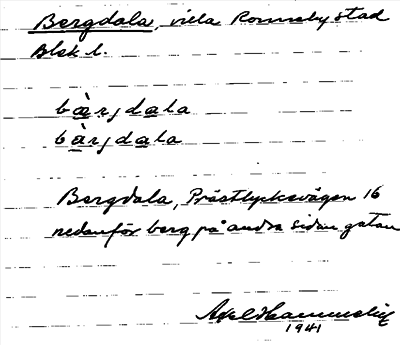 Bergdala, villa Ronneby stad
Blek l.
bæ̀rjdala
bàrjdala
Bergdala, Prästlycksvägen 16
nedanför berg på andra sidan gatan
1941